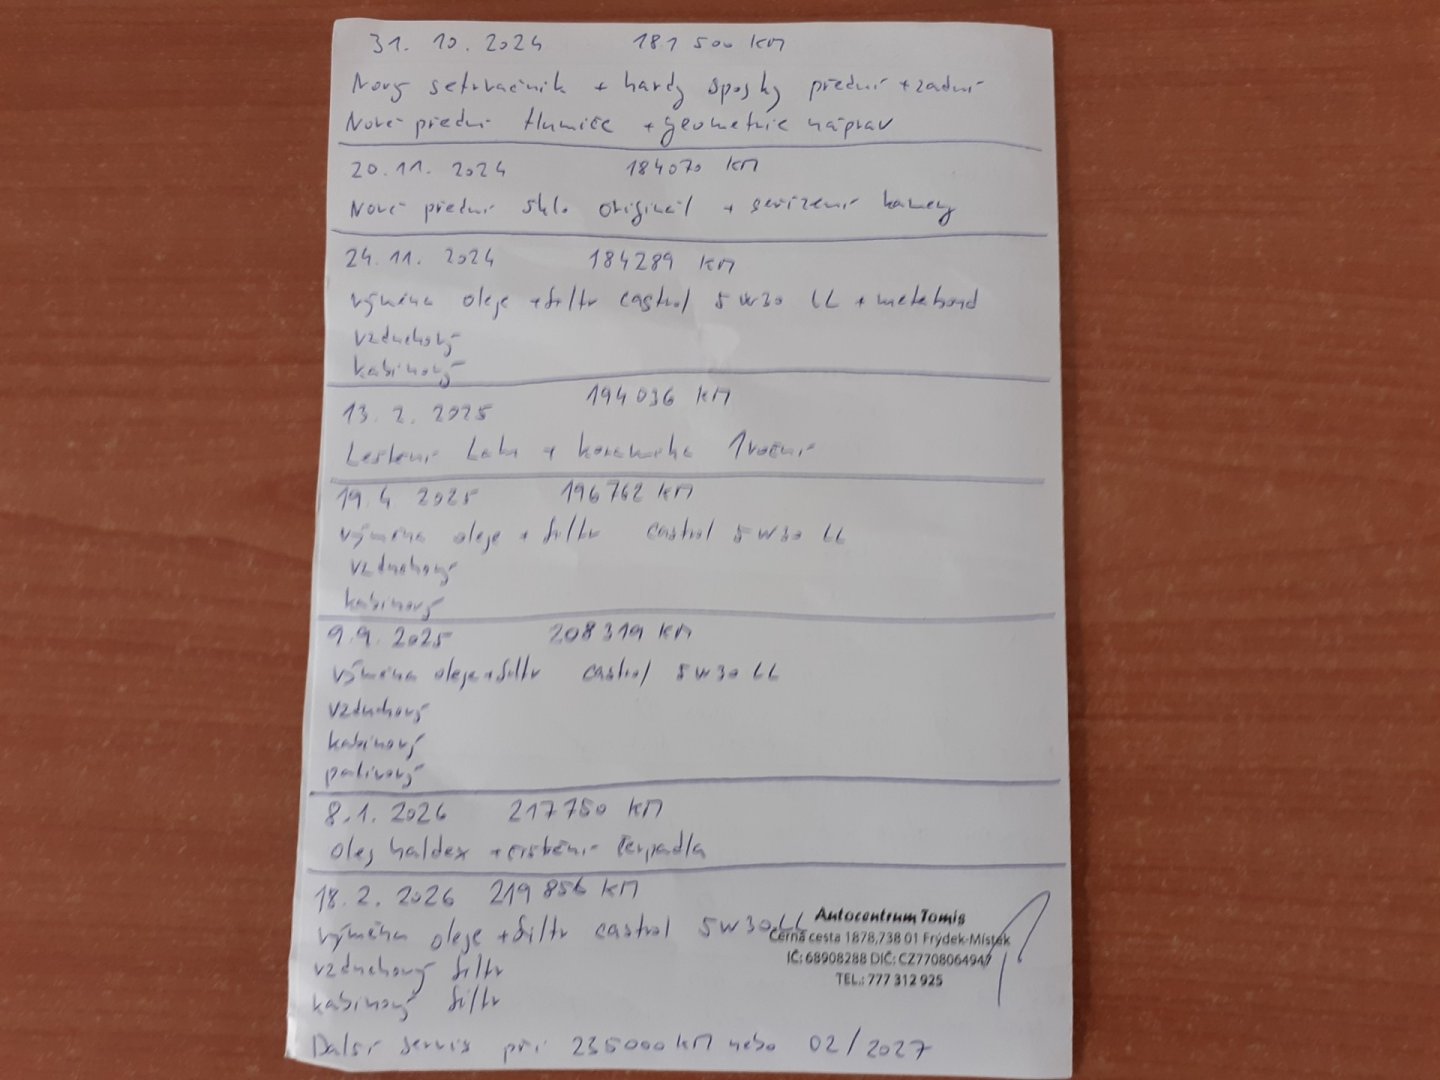 31. 10. 2024 181 500 KM
Nový setrvačník + hardy spojky přední + zadní
Nové přední tlumiče + geometrie náprav
20. 11. 2024 184070 KM
Nové přední sklo originál + seřízení kamery
24. 11. 2024 184289 KM
výměna oleje + filtr castrol 5W30 LL + metabond
vzduchový
kabinový
13. 2. 2025 194036 KM
Leštění Laku + keramika 1 roční
19. 4 2025 196762 KM
výměna oleje + filtr castrol 5W30 LL
vzduchový
kabinový
9.9. 2025 208319 KM
výměna oleje + filtr castrol 5W30 LL
vzduchový
kabinový
palivový
8.1. 2026 217750 KM
olej haldex + čištění čerpadla
18. 2. 2026 219 856 KM
výměna oleje + filtr castrol 5W30 LL
vzduchový filtr
kabinový filtr
Autocentrum Tomis
Černá cesta 1878,738 01 Frýdek-Místek
IČ: 68908288 DIČ: CZ7708064947
TEL.: 777 312 925
Další servis při 235000 KM nebo 02/2027